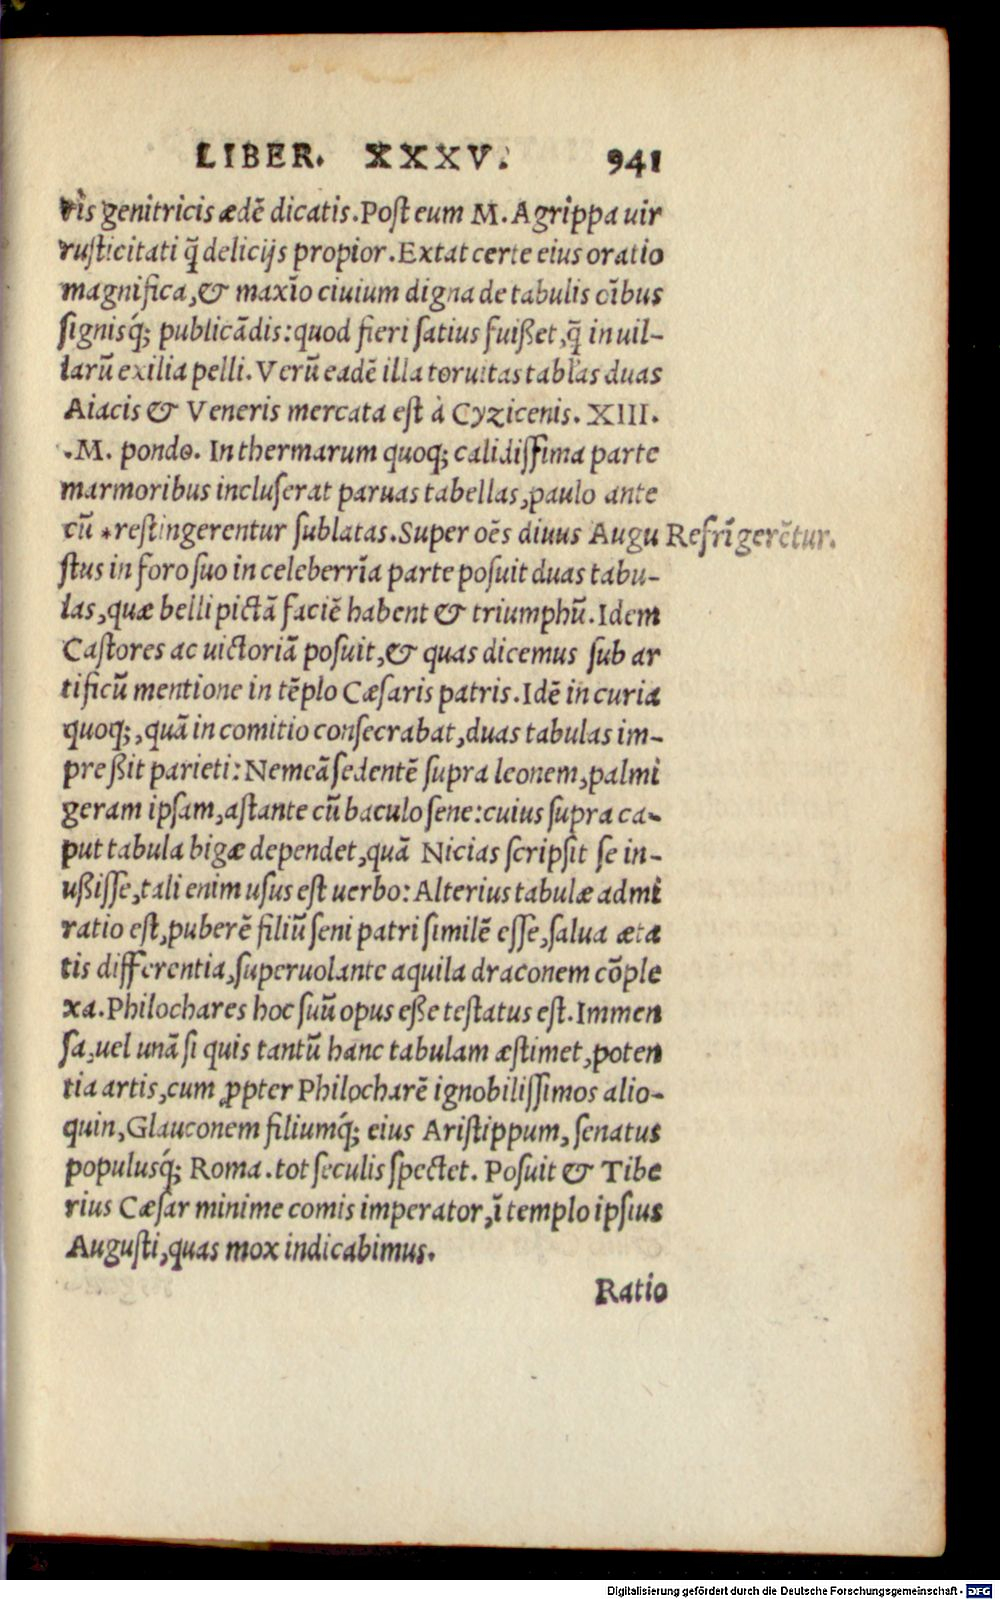 LIBER. XXXV. 941
ris genitricis ædē dicatis. Post eum M. Agrippa uir
rusticitati q̃ delicijs propior. Extat certe eius oratio
magnifica, & maxīo ciuium digna de tabulis oībus
signisq́; publicādis: quod fieri satius fuißet, q̃ in uil-
larū exilia pelli. Verū eadē illa toruitas tablas duas
Aiacis & Veneris mercata est à Cyzicenis. XIII.
.M. pondo. In thermarum quoq; calidissima parte
marmoribus incluserat paruas tabellas, paulo ante
cū *restingerentur sublatas. Super oēs diuus Augu Refrīgerētur.
stus in foro suo in celeberrīa parte posuit duas tabu-
las, quæ belli pictā faciē habent & triumphū. Idem
Castores ac uictoriā posuit, & quas dicemus sub ar
tificū mentione in tēplo Cæsaris patris. Idē in curia
quoq;, quā in comitio consecrabat, duas tabulas im-
preßit parieti: Nemeā sedentē supra leonem, palmi
geram ipsam, astante cū baculo sene: cuius supra ca-
put tabula bigæ dependet, quā Nicias scripsit se in-
ußisse, tali enim usus est uerbo: Alterius tabulæ admi
ratio est, puberē filiū seni patri similē esse, salua æta
tis differentia, superuolante aquila draconem cōple
xa. Philochares hoc suū opus eße testatus est. Immen
sa, uel unā si quis tantū hanc tabulam æstimet, poten
tia artis, cum ꝓpter Philocharē ignobilissimos alio-
quin, Glauconem filiumq́; eius Aristippum, senatus
populusq́; Roma. tot seculis spectet. Posuit & Tibe
rius Cæsar minime comis imperator, ī templo ipsius
Augusti, quas mox indicabimus.
Ratio
Digitalisierung gefördert durch die Deutsche Forschungsgemeinschaft - DFG